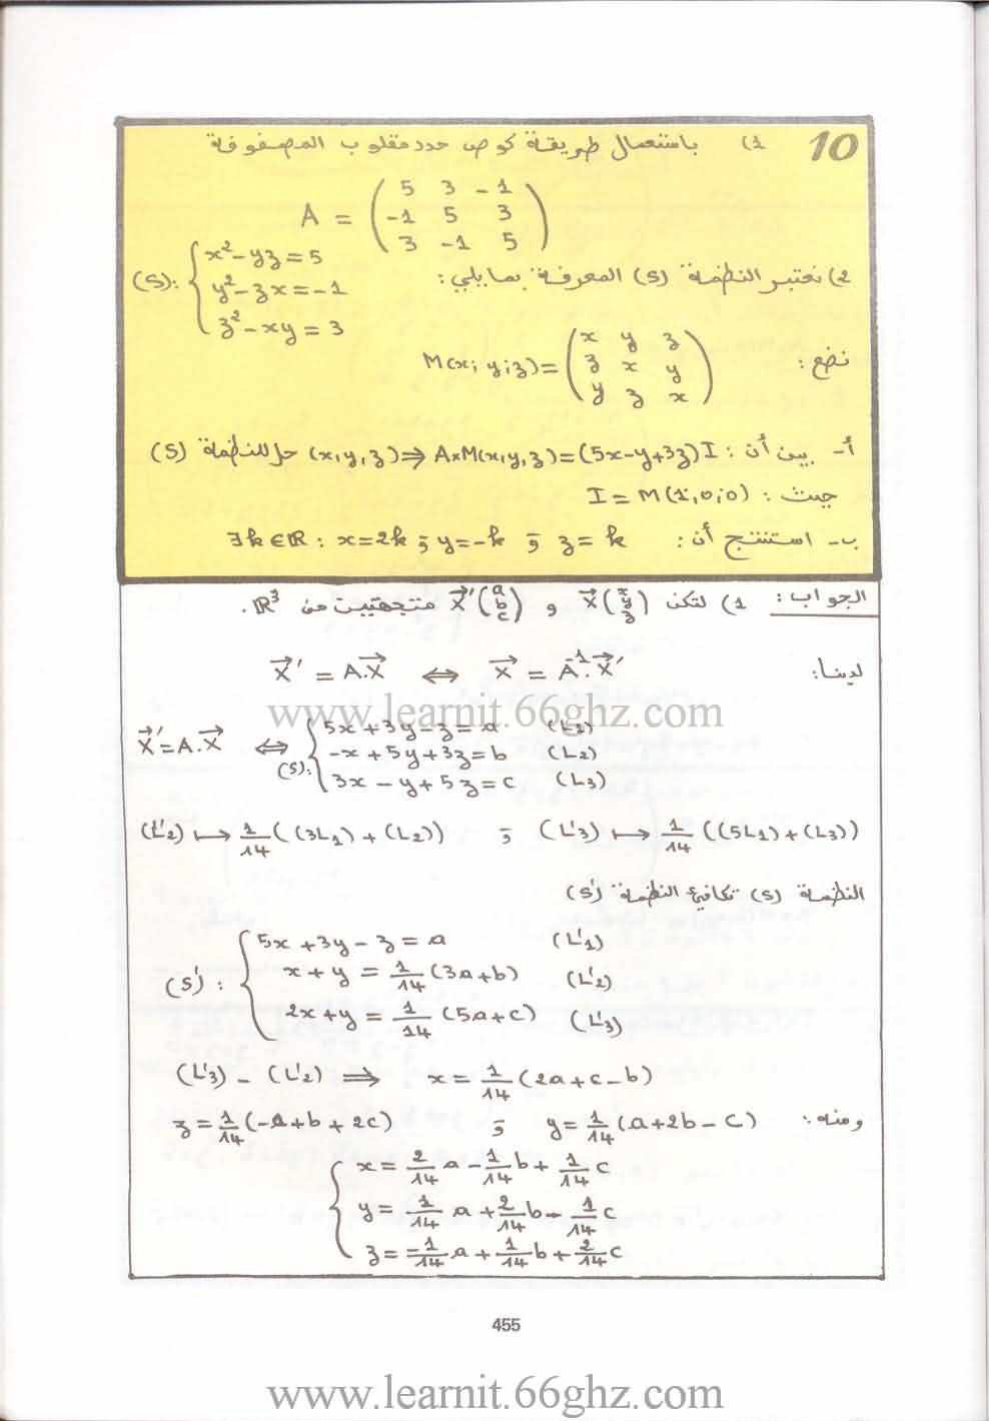 10 1) باستعمال طريقة كوص حدد مقلوب المصفوفة
A = ( 5 3 -1
-1 5 3
3 -1 5 )
2) نعتبر النظمة (S) المعرفة بمايلي :
(S): { x² - yz = 5
y² - zx = -1
z² - xy = 3
نضع : M(x; y; z) = ( x y z
z x y
y z x )
أ- بين أن : (x, y, z) حل للنظمة (S) ⇒ A×M(x, y, z) = (5x-y+3z) I
حيث : I = M(1, 0; 0)
ب- استنتج أن : ∃k∈ℝ : x=2k ; y=-k ; z=k
الجواب : 1) لتكن X⃗(x y z) و X⃗'(a b c) متجهتين من ℝ³.
لدينا: X⃗' = A.X⃗ ⇔ X⃗ = A⁻¹.X⃗'
www.learnit.66ghz.com
X⃗' = A.X⃗ ⇔ (S): { 5x + 3y - z = a (L1)
-x + 5y + 3z = b (L2)
3x - y + 5z = c (L3)
(L'2) ↦ 1/14 ((3L1) + (L2)) ; (L'3) ↦ 1/14 ((5L1) + (L3))
النظمة (S) تكافئ النظمة (S')
(S'): { 5x + 3y - z = a (L'1)
x + y = 1/14 (3a+b) (L'2)
2x + y = 1/14 (5a+c) (L'3)
(L'3) - (L'2) ⇒ x = 1/14 (2a+c-b)
ومنه : y = 1/14 (a+2b-c) ; z = 1/14 (-a+b+2c)
{ x = 2/14 a - 1/14 b + 1/14 c
y = 1/14 a + 2/14 b - 1/14 c
z = -1/14 a + 1/14 b + 2/14 c
455
www.learnit.66ghz.com